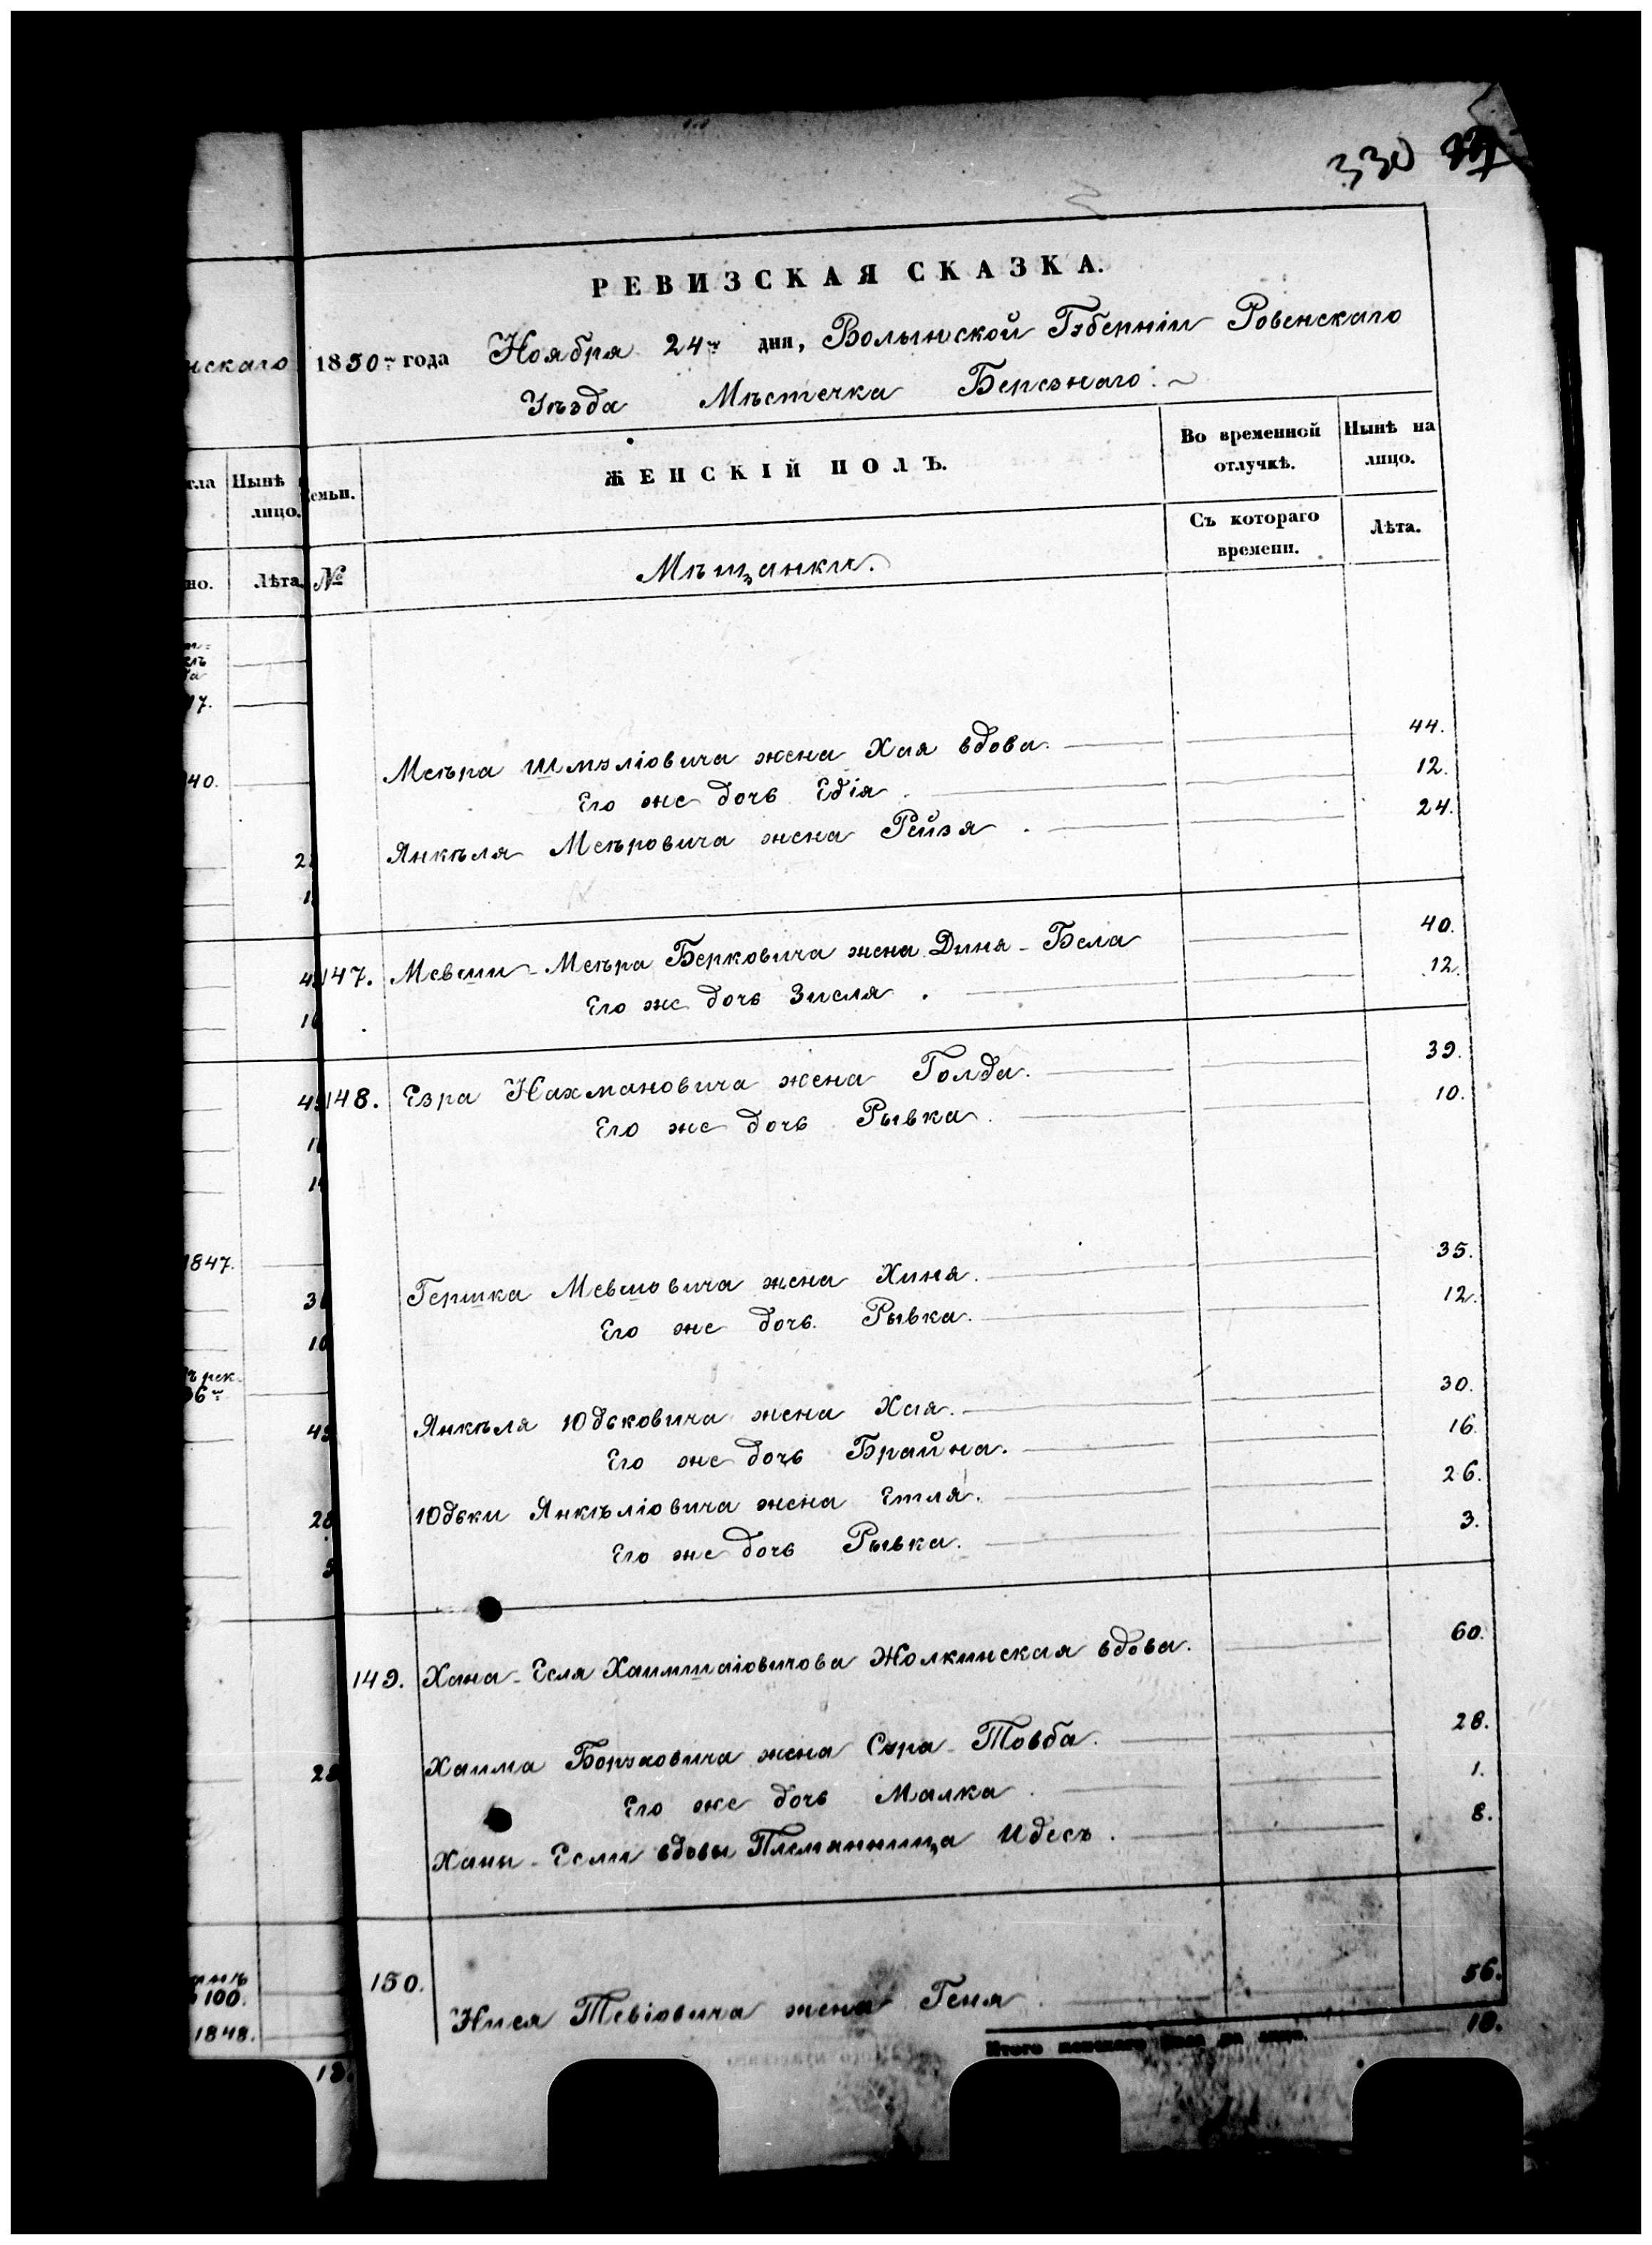 330
РЕВИЗСКАЯ СКАЗКА.
нскаго 1850го года Ноября 24го дня, Волынской Губерніи Ровенскаго
Уѣзда Мѣстечка Березнаго.
гла Нынѣ лицо.
емьи. ЖЕНСКІЙ ПОЛЪ. Во временной отлучкѣ. Нынѣ на лицо.
но. Лѣта. № Мѣщанки. Съ котораго времени. Лѣта.
Меѣра Шмуліовича жена Хая вдова. 44.
Его же дочь Едія. 12.
Янкѣля Меѣровича жена Рейзя. 24.
147. Мевши-Меѣра Берковича жена Диня-Бела 40.
Его же дочь Зисля. 12.
148. Езра Нахмановича жена Голда. 39.
Его же дочь Рывка. 10.
1847.
Гершка Мевшовича жена Хиня. 35.
Его же дочь Рывка. 12.
Янкѣля Юдьковича жена Хая. 30.
Его же дочь Брайна. 16
Юдьки Янкѣліовича жена Етля. 26.
Его же дочь Рывка. 3.
149. Хана-Есля Хаимшаіовичова Жолкинская вдова. 60.
Хаима жена Сура-Товба. 28.
Его же дочь Малка. 1.
Ханы-Если вдовы Племянница Идесъ. 8.
150. 100.
Нися Тевіовича жена Геня. 56.
1848.
Итого женскаго пола на лицо. 18.
18.